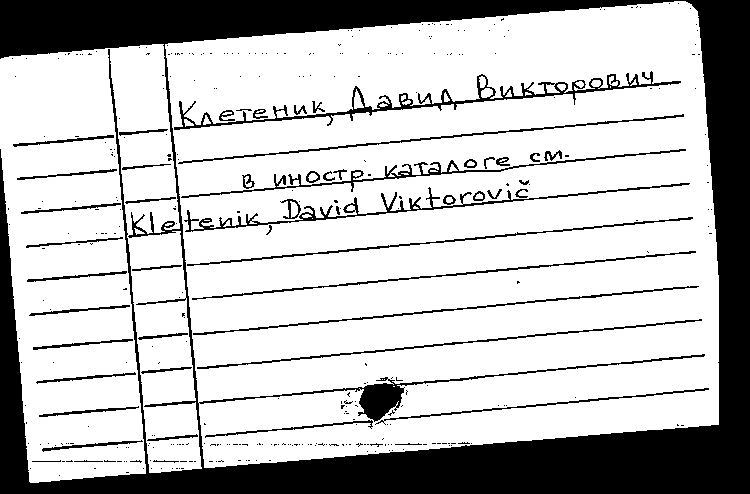 Клетеник, Давид Викторович
в иностр. каталоге см.
Kletenik, David Viktorovič